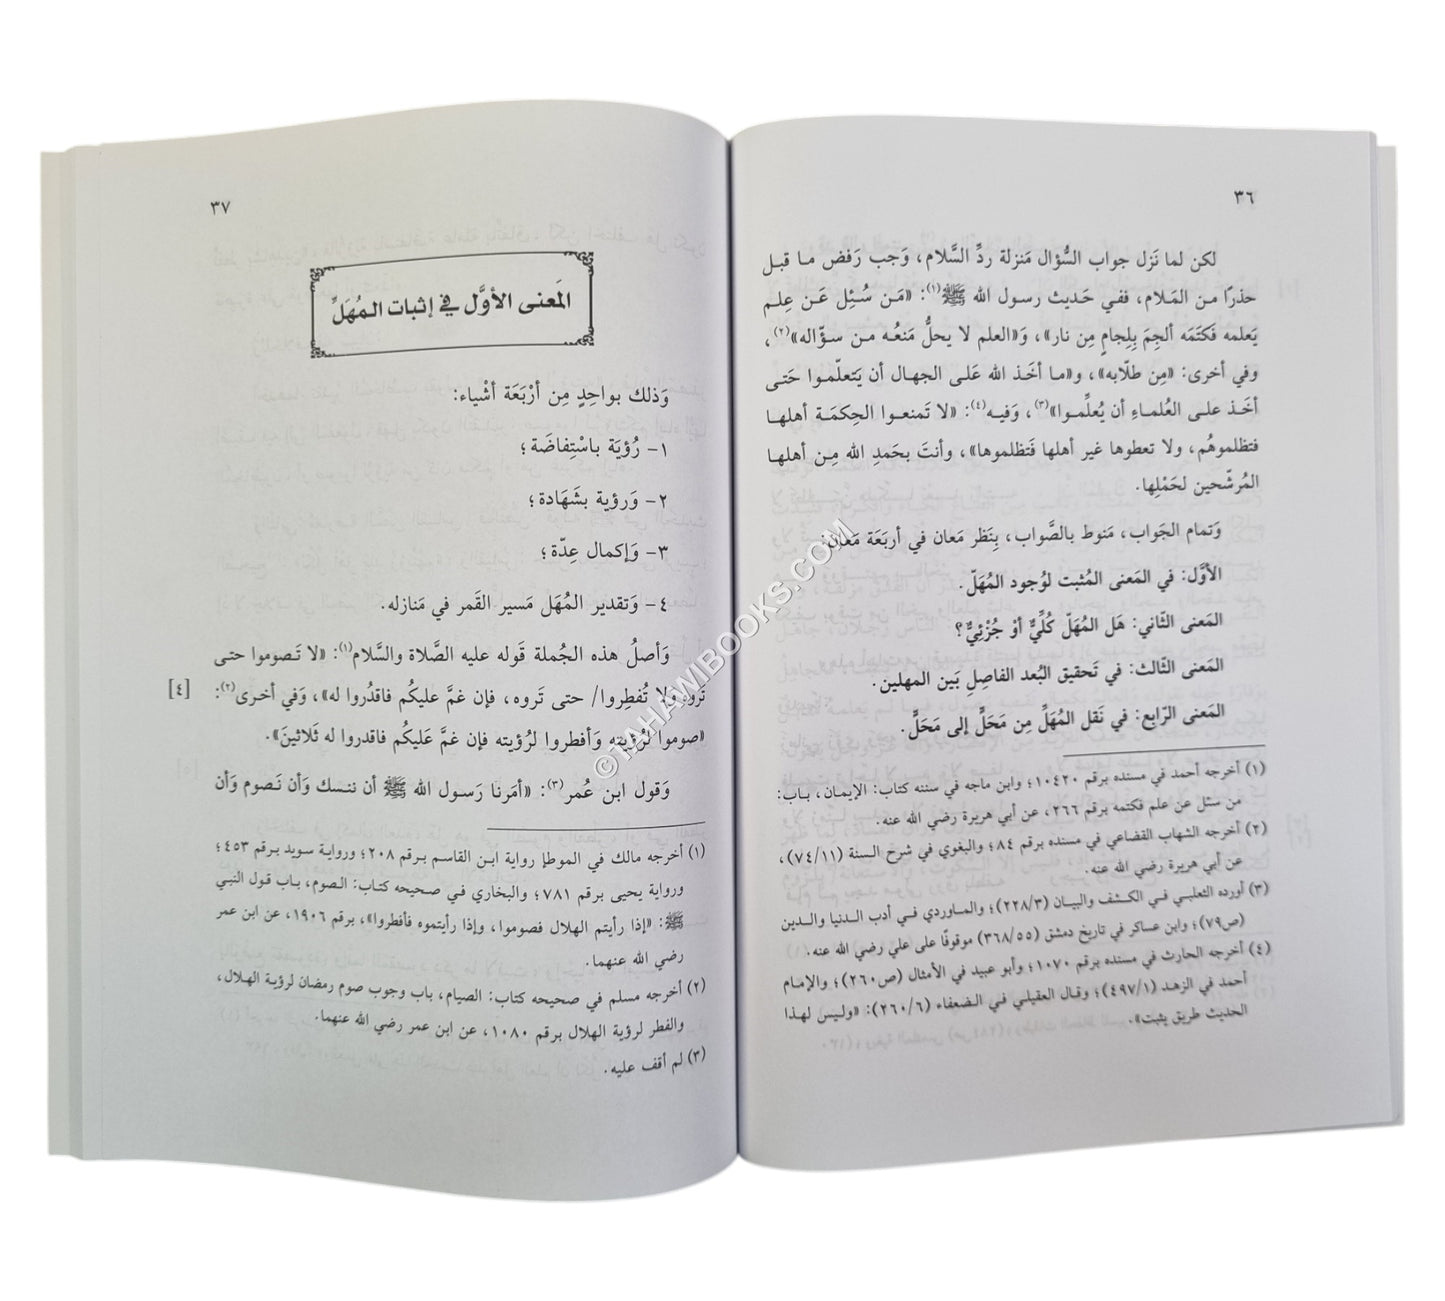 ٣٦
لكن لما نَزل جواب السُّؤال مَنزلة ردِّ السَّلام، وَجب رَفض ما قبل
حذرًا من المَلام، ففي حَديث رسول الله ﷺ(١): «مَـن سُـئِل عَـن عِلـم
يَعلمه فَكتَمَه ألجِمَ بِلِجامٍ مِن نار»، وَ«العلم لا يحلُّ مَنعُـه مـن سـؤّاله»(٢)،
وفي أخرى: «مِن طلّابه»، وَ«مـا أخَـذ الله عَلـى الجهال أن يَتعلّمـوا حَتـى
أخَـذ علـى العُلمـاءِ أن يُعلِّمـوا»(٣)، وَفيـه(٤): «لا تَمنعـوا الحِكمَـة أهلهـا
فتظلموهُم، ولا تعطوها غير أهلها فَتظلموها»، وأنتَ بحَمدِ الله مِـن أهلهـا
المُرشّحين لحَمْلِها.
وَتمام الجَواب، مَنوط بالصَّواب، بِنَظر مَعان في أربَعَة مَعان:
الأوَّل: في المَعنى المُثبت لوُجود المُهَلّ.
المَعنى الثّاني: هَل المُهَلّ كُلِّيٌّ أوْ جُزْئِيٌّ؟
المَعنى الثّالث: في تَحقيق البُعد الفاصِلِ بَين المهلين.
المَعنى الرّابع: في نَقل المُهَلِّ مِن مَحَلٍّ إلى مَحَلٍّ.
(١) أخرجه أحمد في مسنده برقم ١٠٤٢٠؛ وابن ماجه في سننه كتاب: الإيمان، بـاب:
من سئل عن علم فكتمه برقم ٢٦٦، عن أبي هريرة رضي الله عنه.
(٢) أخرجه الشهاب القضاعي في مسنده برقم ٨٤؛ والبغوي في شرح السنة (٧٤/١١)،
عن أبي هريرة رضي الله عنه.
(٣) أورده الثعلبـي فـي الكـشف والبيـان (٢٢٨/٣)؛ والمـاوردي فـي أدب الـدنيا والـدين
(ص٧٩)؛ وابن عساكر في تاريخ دمشق (٣٦٨/٥٥) موقوفًا على علي رضي الله عنه.
(٤) أخرجه الحارث في مسنده برقم ١٠٧٠؛ وأبو عبيد في الأمثال (ص٢٦٠)؛ والإمام
أحمد في الزهـد (٤٩٧/١)؛ وقـال العقيلـي فـي الـضعفاء (٢٦٠/٦): «ولـيس لهـذا
الحديث طريق يثبت».
٣٧
المَعنى الأوَّل في إثبات المُهَلِّ
وَذلك بواحِدٍ مِن أرْبَعَة أشْياء:
١- رُؤيَة باسْتِفاضَة؛
٢- وَرؤية بشَهَادة؛
٣- وَإكمال عِدّة؛
٤- وَتقدير المُهَل مَسير القَمر في مَنازله.
وَأصلُ هذه الجُملة قَوله عليه الصَّلاة والسَّلام(١): «لا تَصوموا حتـى
تَروه ولا تُفطِروا/ حتى تَروه، فإن غمَّ عليكُم فاقدُروا له»، وَفي أخرى(٢):
[٤]
«صوموا لرُؤيته وَأفطروا لرُؤيته فإن غمَّ عَليكُم فاقدروا له ثَلاثينَ».
وَقول ابن عُمر(٣): «أمَرنَا رَسـول الله ﷺ أن ننسك وَأن نَـصوم وَأن
(١) أخرجه مالك في الموطإ رواية ابـن القاسم بـرقم ٢٠٨؛ وروايـة سويد بـرقم ٤٥٣؛
ورواية يحيى برقم ٧٨١؛ والبخاري في صـحيحه كتاب: الـصوم، بـاب قول النبي
ﷺ: «إذا رأيتم الهلال فصوموا، وإذا رأيتموه فأفطروا»، برقم ١٩٠٦، عن ابن عمر
رضي الله عنهما.
(٢) أخرجه مسلم في صحيحه كتاب: الصيام، باب وجوب صوم رمضان لرؤية الهلال،
والفطر لرؤية الهلال برقم ١٠٨٠، عن ابن عمر رضي الله عنهما.
(٣) لم أقف عليه.
© TAHAWIBOOKS.COM